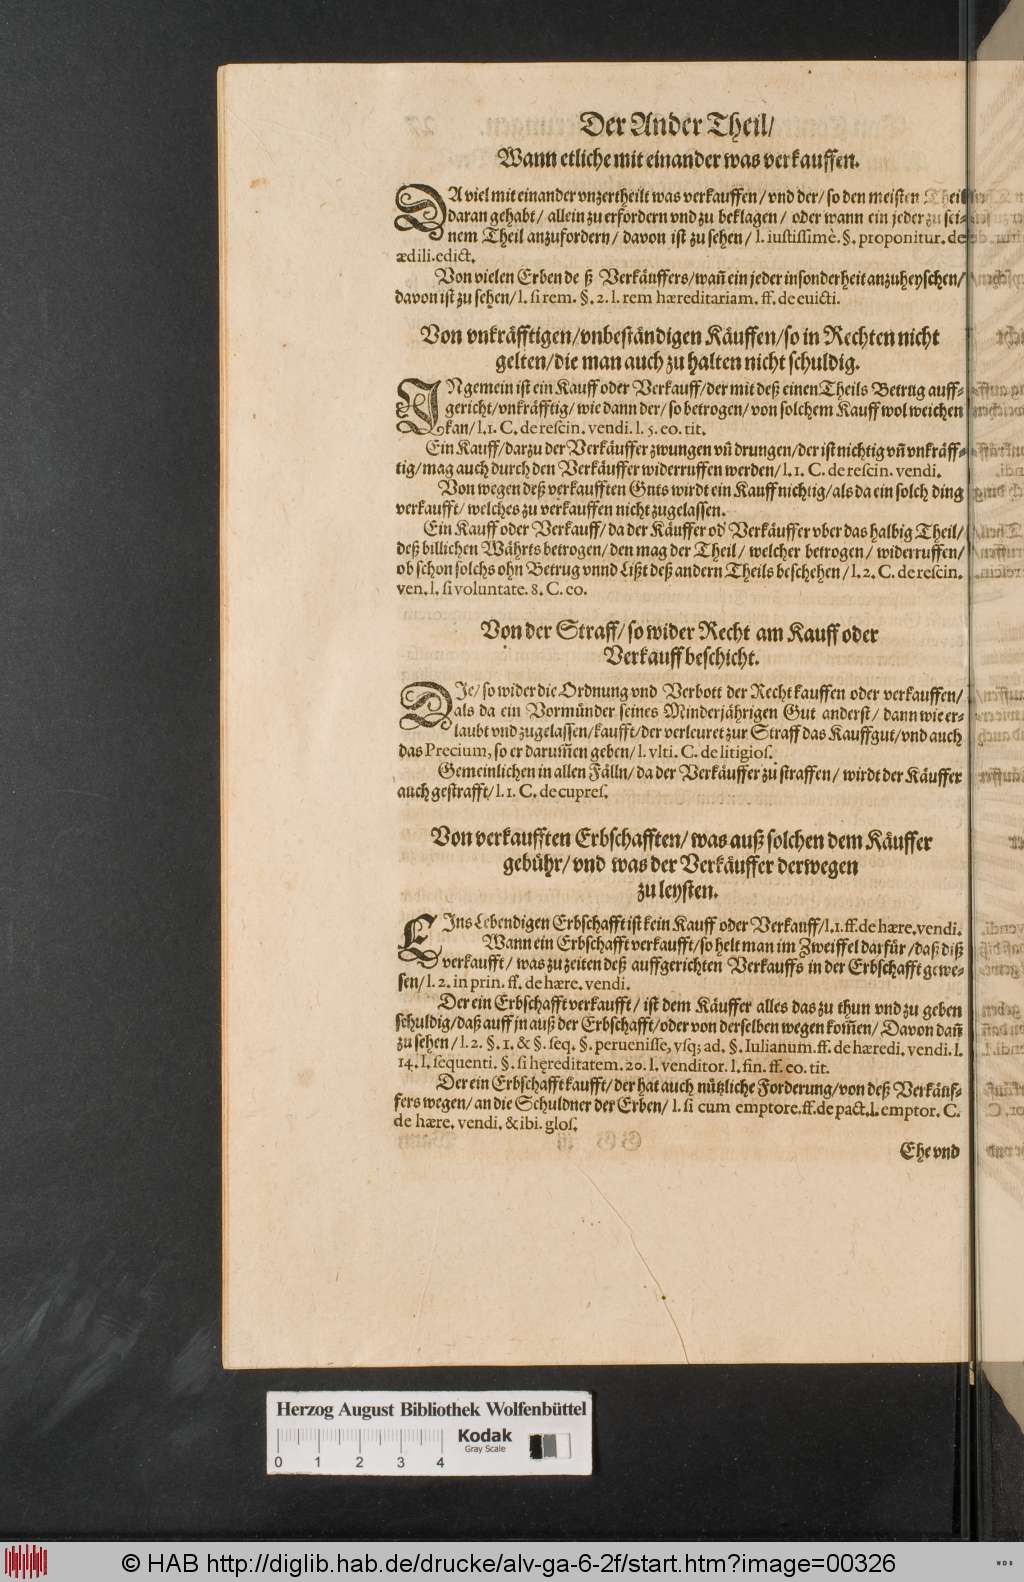 Der Ander Theil/
Wann etliche mit einander was verkauffen.
DA viel mit einander vnzertheilt was verkauffen/ vnd der/ so den meisten Theil
daran gehabt/ allein zu erfordern vnd zu beklagen/ oder wann ein jeder zu sei-
nem Theil anzufordern/ davon ist zu sehen/ l. iustissimè. §. proponitur. de
ædili. edict.
Von vielen Erben deß Verkäuffers/ wañ ein jeder insonderheit anzuheyschen/
davon ist zu sehen/ l. si rem. §. 2. l. rem hæreditariam. ff. de euicti.
Von vnkräfftigen/ vnbeständigen Käuffen/ so in Rechten nicht
gelten/ die man auch zu halten nicht schuldig.
INgemein ist ein Kauff oder Verkauff/ der mit deß einen Theils Betrug auff-
gericht/ vnkräfftig/ wie dann der/ so betrogen/ von solchem Kauff wol weichen
kan/ l. 1. C. de rescin. vendi. l. 5. eo. tit.
Ein Kauff/ darzu der Verkäuffer zwungen vñ drungen/ der ist nichtig vñ vnkräff-
tig/ mag auch durch den Verkäuffer widerruffen werden/ l. 1. C. de rescin. vendi.
Von wegen deß verkaufften Guts wirdt ein Kauff nichtig/ als da ein solch ding
verkaufft/ welches zu verkauffen nicht zugelassen.
Ein Kauff oder Verkauff/ da der Käuffer od' Verkäuffer vber das halbig Theil/
deß billichen Währts betrogen/ den mag der Theil/ welcher betrogen/ widerruffen/
ob schon solchs ohn Betrug vnnd Lißt deß andern Theils beschehen/ l. 2. C. de rescin.
ven. l. si voluntate. 8. C. eo.
Von der Straff/ so wider Recht am Kauff oder
Verkauff beschicht.
DJe/ so wider die Ordnung vnd Verbott der Recht kauffen oder verkauffen/
als da ein Vormünder seines Minderjährigen Gut anderst/ dann wie er-
laubt vnd zugelassen/ kaufft/ der verleuret zur Straff das Kauffgut/ vnd auch
das Precium, so er darum̃en geben/ l. vlti. C. de litigios.
Gemeinlichen in allen Fälln/ da der Verkäuffer zu straffen/ wirdt der Käuffer
auch gestrafft/ l. 1. C. de cupres.
Von verkaufften Erbschafften/ was auß solchen dem Käuffer
gebühr/ vnd was der Verkäuffer derwegen
zu leysten.
EJns Lebendigen Erbschafft ist kein Kauff oder Verkauff/ l. 1. ff. de hære. vendi.
Wann ein Erbschafft verkaufft/ so helt man im Zweiffel darfür/ daß diß
verkaufft/ was zu zeiten deß auffgerichten Verkauffs in der Erbschafft gewe-
sen/ l. 2. in prin. ff. de hære. vendi.
Der ein Erbschafft verkaufft/ ist dem Käuffer alles das zu thun vnd zu geben
schuldig/ daß auff jn auß der Erbschafft/ oder von derselben wegen kom̃en/ Davon dañ
zu sehen/ l. 2. §. 1. & §. seq. §. peruenisse, vsq; ad. §. Iulianum. ff. de hæredi. vendi. l.
14. l. sequenti. §. si hęreditatem. 20. l. venditor. l. fin. ff. eo. tit.
Der ein Erbschafft kaufft/ der hat auch nützliche Forderung/ von deß Verkäuf-
fers wegen/ an die Schuldner der Erben/ l. si cum emptore. ff. de pact. l. emptor. C.
de hære. vendi. & ibi. glos.
Ehe vnd
Herzog August Bibliothek Wolfenbüttel
Kodak
Gray Scale
0 1 2 3 4
© HAB http://diglib.hab.de/drucke/alv-ga-6-2f/start.htm?image=00326